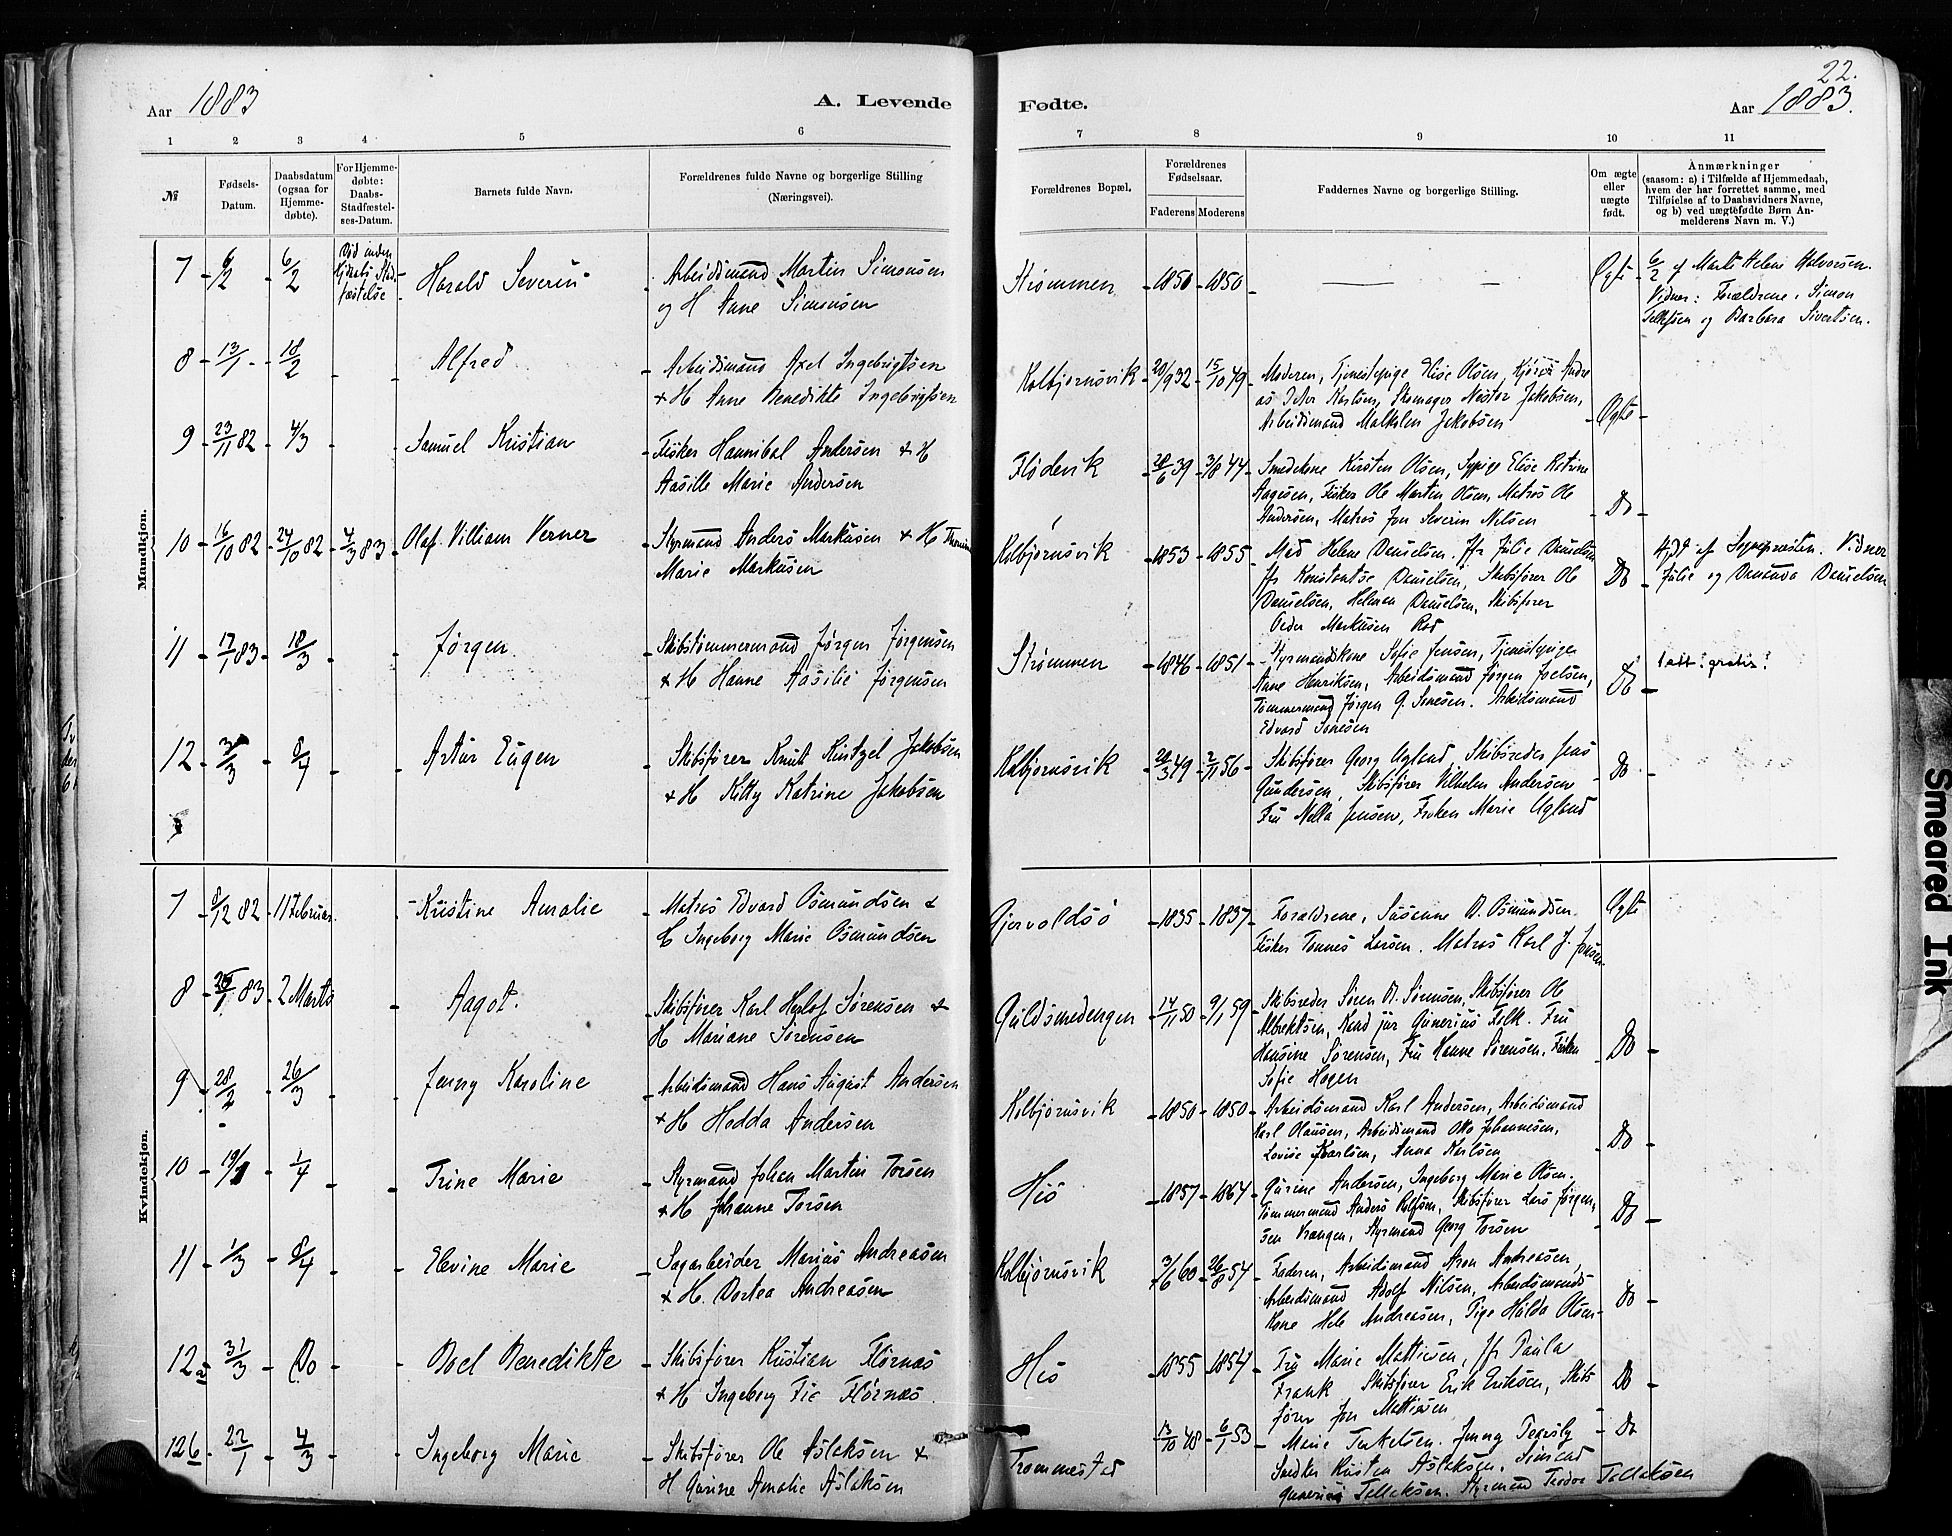 22.
Aar 1883
A. Levende
Fødte.
Aar 1883.
1 2 3 4 5 6 7 8 9 10 11
№
Fødsels-
Datum.
Daabsdatum
(ogsaa for
Hjemme-
døbte).
For Hjemme-
døbte:
Daabs-
Stadfæstel-
ses-Datum.
Barnets fulde Navn.
Forældrenes fulde Navne og borgerlige Stilling
(Næringsvei).
Forældrenes Bopæl.
Forældrenes
Fødselsaar.
Faderens Moderens
Faddernes Navne og borgerlige Stilling.
Om ægte
eller
uægte
født.
Anmærkninger
(saasom: a) i Tilfælde af Hjemmedaab,
hvem der har forrettet samme, med
Tilføielse af to Daabsvidners Navne,
og b) ved uægtefødte Børn An-
melderens Navn m. V.)
Mandkjøn.
7 6/2 6/2
Død inden
Kirkens Stad
fæstelse
Harald Severin
Arbeidsmand Martin Simonsen
og H Anne Simonsen
Strømmen 1850 1850
Ægte
6/2 af Marte Helene Halvorsen.
Vidner: Forældrene, Simon
Tellefsen og Barbara Sivertsen.
8 13/1 18/2 Alfred
Arbeidsmand Axel Ingebrigtsen
+ H Anne Benedikte Ingebrigtsen
Kolbjørnsvik 20/9 32 15/10 49
Moderen, Tjenestepige Elise Olsen, Andre
as Peter Karlsen, Skomager Nestor Jakobsen,
Arbeidsmand Jakobsen
Ægte
9 23/11 82 4/3 Samuel Kristian
Fisker Hannibal Andersen + H
Aasille Marie Andersen
Flødevik 28/6 39 3/8 44
Smedekone Kirsten Olsen, Sypige Elise Katrine
Aagesen, Fisker Ole Martin Olsen, Matros Ole
Andersen, Matros Jon Severin Nilsen
Do
10 16/10 82 24/10 82 4/3 83 Olaf Villiam Verner
Styrmand Anders Markusen + H
Marie Markusen
Kolbjørnsvik 1853 1855
Mad Helene Danielsen. Jfr Julie Danielsen
Jfr Konstantse Danielsen, Skibsfører Ole
Danielsen, Helmer Danielsen, Skibsfører
Peder Markusen Rød
Do
Hjdt af Sogneprsten. Vidner
Julie og Danielsen
11 17/1 83 18/3 Jørgen
Skibstømmermand Jørgen Jørgensen
+ H Hanne Aasilie Jørgensen
Strømmen 1846 1851
Styrmandskone Sofie Jensen, Tjenestepige
Anne Henriksen, Arbeidsmand Jørgen Joelsen,
Tømmermand Jørgen G. Sonesen. Arbeidsmand
Edvard Sonesen
Do
! att! gratis!
12 3/3 8/4 Artur Eugen
Skibsfører Knut Jakobsen
+ H Kitty Katrine Jakobsen
Kolbjørnsvik 28/3 49 2/11 56
Skibsfører Georg Ugland, Skibsreder Jens
Gundersen, Skibsfører Vilhelm Andersen
Fru Jensen, Frøken Marie Ugland
Do
Kvindekjøn.
7 8/12 82 11 Februar Kristine Amalie
Matros Edvard Osmundsen &
H Ingeborg Marie Osmundsen
Gjervoldsø 1835 1837
Forældrene, Susanne B. Osmundsen
Fisker Tønnes Larsen. Matros Karl J. Jensen
Ægte
8 28/1 83 2 Marts Aagot.
Skibsfører Karl Herlof Sørensen &
H Mariane Sørensen
Guldsmedengen 14/11 50 9/1 59
Skibsreder Søren A. Sørensen, Skibsfører Ole
Albrektsen, Kand jur Gunerius Falk. Fru
Hansine Sørensen, Fru Hanne Sørensen, Frøken
Sofie Hagen
Do
9 28/2 26/3 Jenny Karoline
Arbeidsmand Hans August Andersen
+ H Hedda Andersen
Kolbjørnsvik 1850 1850
Arbeidsmand Karl Andersen, Arbeidsmand
Karl Olausen, Arbeidsmand Otto Johannesen,
Lovise Karlsen, Anna Karlsen
Do
10 19/1 1/4 Trine Marie
Styrmand Johan Martin Torsen
+ H Johanne Torsen
Hisø 1857 1864
Gurine Andersen, Ingeborg Marie Olsen.
Tømmermand Anders Rolfsen, Skibsfører Lars Jørgen,
sen Vrangen, Styrmand Georg Torsen
Do
11 1/3 8/4 Elevine Marie
Sagarbeider Marius Andreasen
+ H. Dortea Andreasen
Kolbjørnsvik 3/6 60 26/8 54
Faderen, Arbeidsmand Aron Andreasen,
Arbeidsmand Adolf Nilsen, Arbeidsmands
kone Hele Andreasen, Pige Hulda Olsen
Do
12a 31/3 Do Boel Benedikte
Skibsfører Kristian Flørnæs
+ H Ingeborg Fie Flørnæs.
Hisø 1855 1854
Fru Marie Mattiesen, Jfr Paula
Frank, Skibsfører Erik Eriksen, Skibs
fører Jon Mattiesen
Do
12b 22/1 4/3 Ingeborg Marie
Skibsfører Ole Aslaksen &
H Gurine Amalie Aslaksen
Trommestad 13/10 48 6/1 53
Marie Terkelsen. Jenny
Kristen Aslaksen.
Tellaksen. Styrmand Tellaksen
Do
Smeared Ink